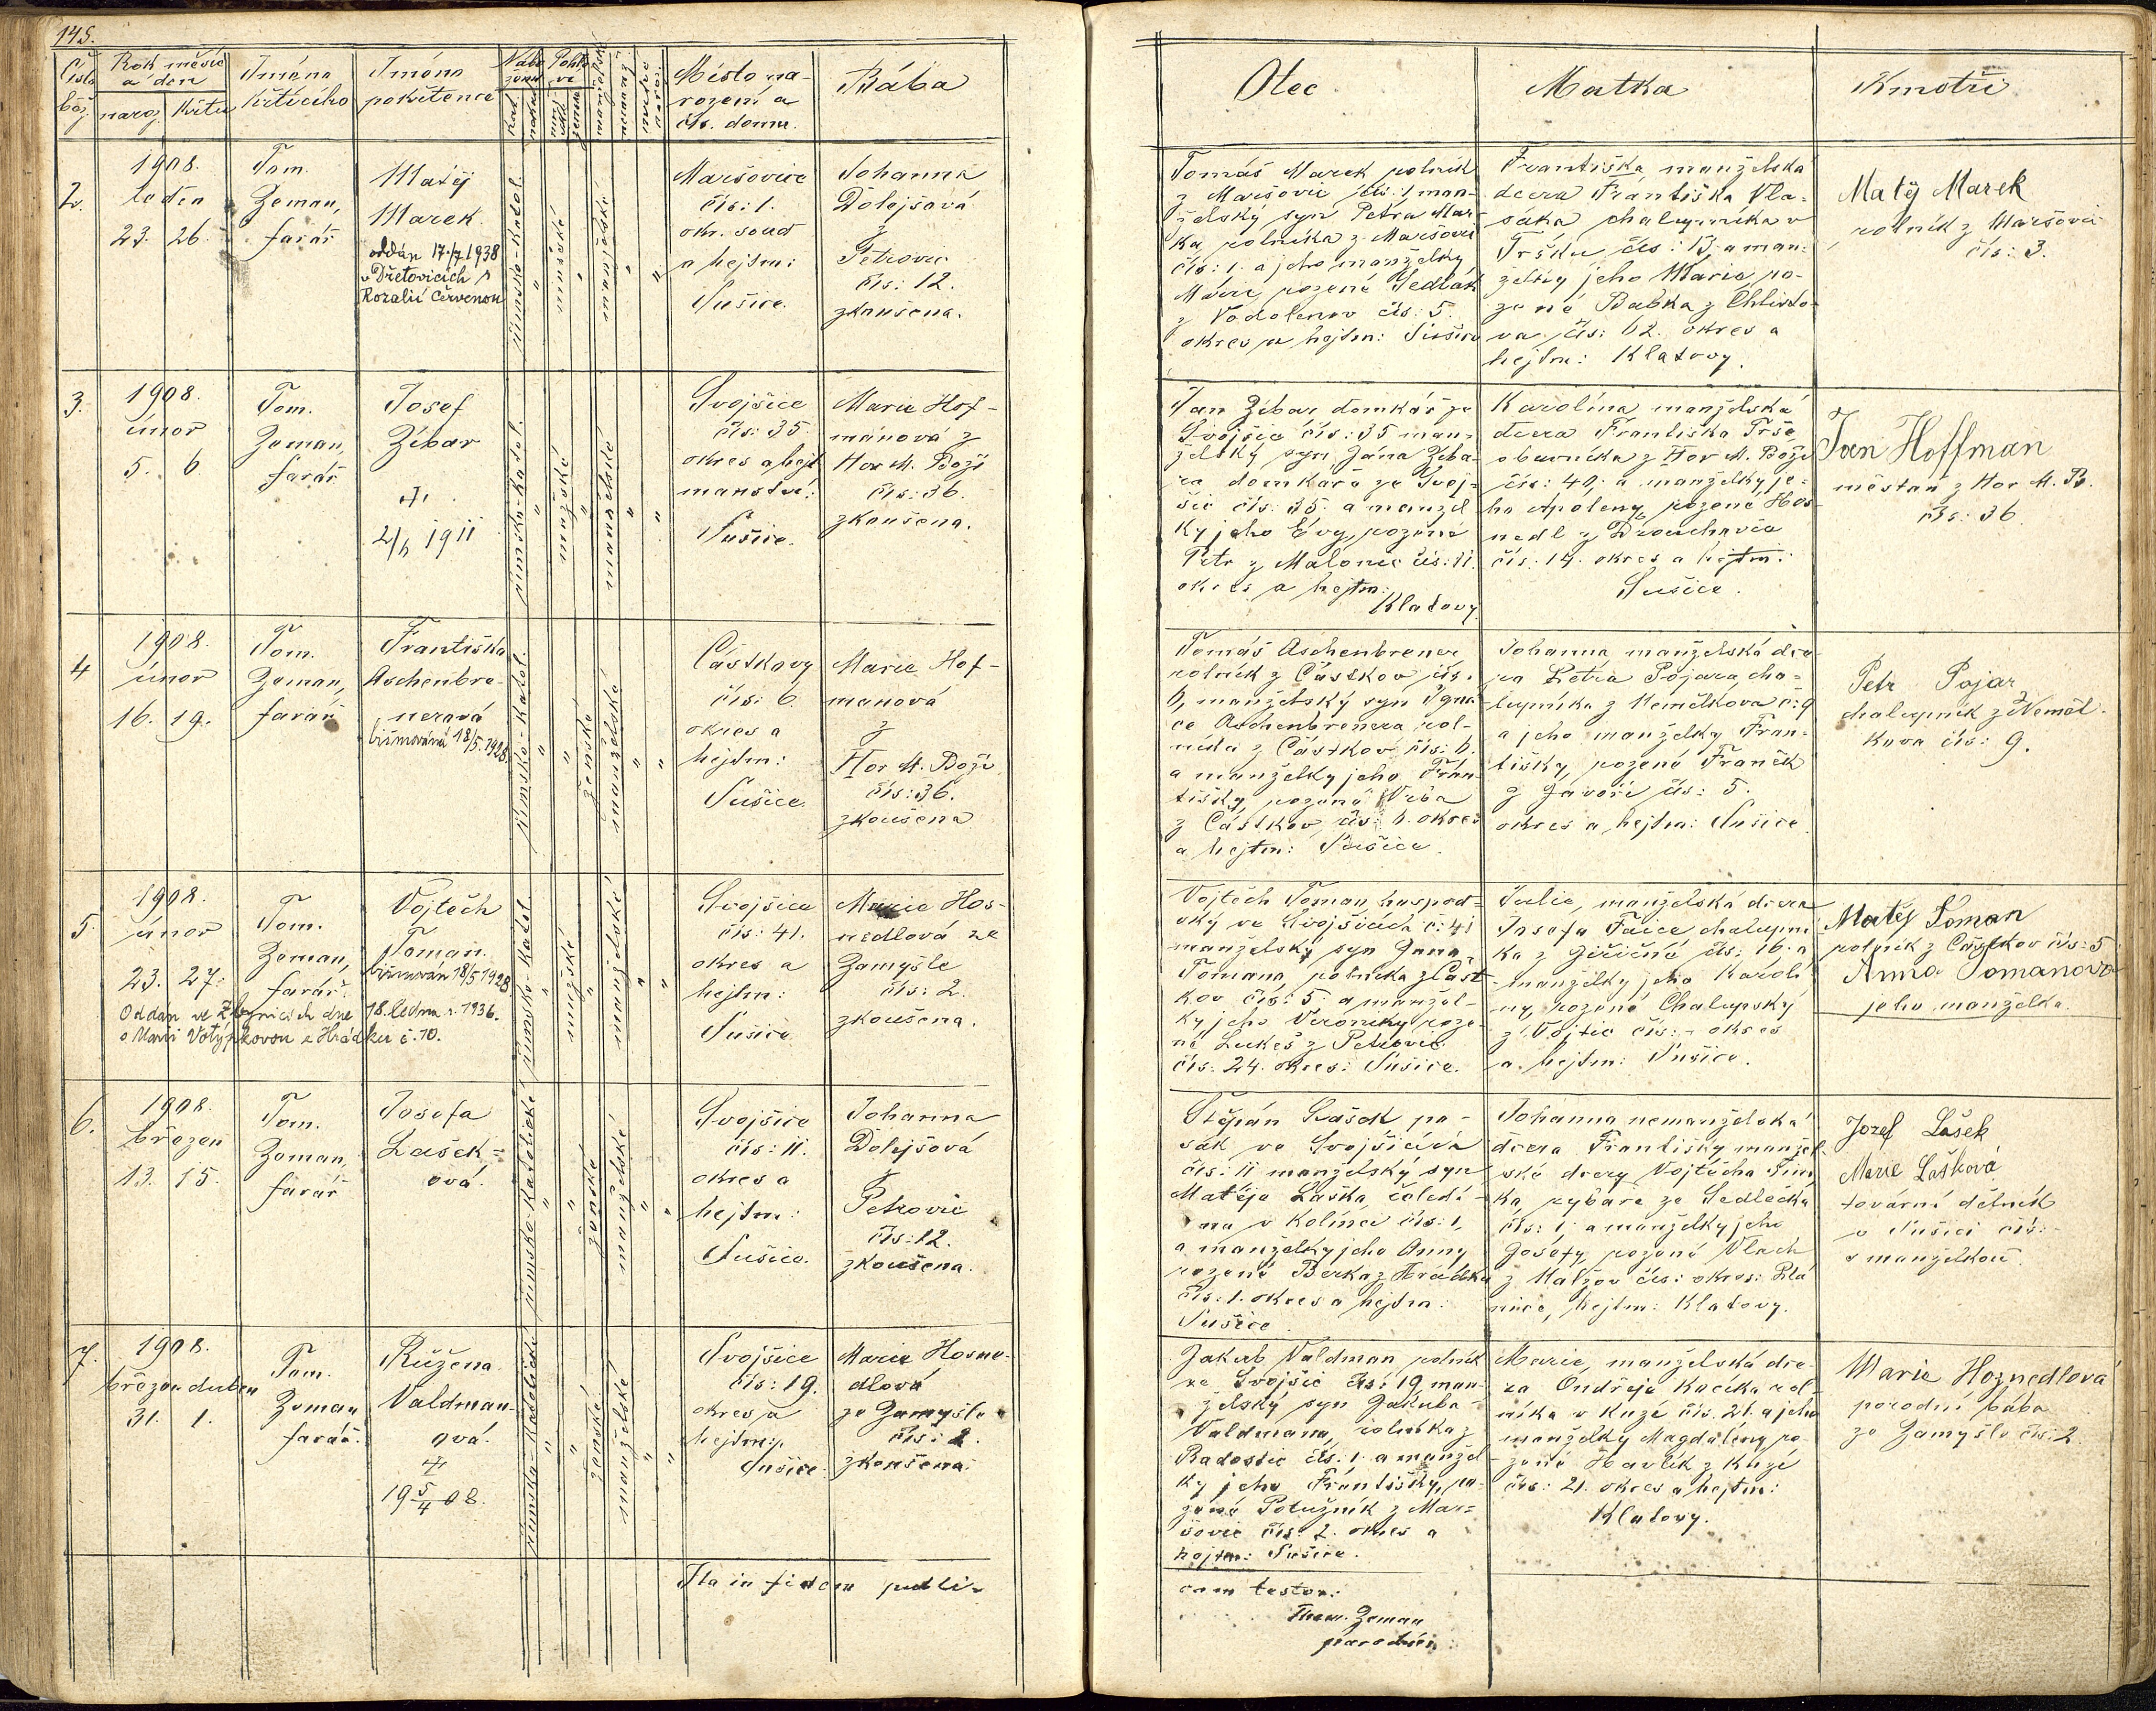 145.
Číslo běž.
Rok měsíc a den
naroz. Křtu
Jméno křtícího
Jméno pokřtence
Kat.
Místo narození a čís. domu.
Bába
Otec
Matka
Kmotři
2.
1908.
leden
23. 26.
Tom.
Zeman,
farář
Matěj
Marek
oddán 17./7 1938
v Dřetovicích s
Rozalií Červenou
římsko-katol.
mužské
manželské
Maršovice
čís: 1.
okr. soud
a hejtm:
Sušice.
Johanna
Dolejšová
z
Petrovic
čís: 12.
zkoušena.
Tomáš Marek rolník
z Maršovic čís: 1 man-
želský syn Petra Mar-
ka, rolníka z Maršovic
čís: 1. a jeho manželky
Marie, rozené Sedlák
z Vodolenov čís: 5.
okres a hejtm: Sušice
Františka manželská
dcera Františka Vla-
sáka chalupníka v
Tršku čís: 13, a man-
želky jeho Marie, ro-
zené Babka z Chlisto-
va čís: 62. okres a
hejtm: Klatovy.
Matěj Marek
rolník z Maršovic
čís: 3.
3.
1908.
únor
5. 6.
Tom.
Zeman,
farář
Josef
Zíbar
†
2/6 1911
římsko-katol.
mužské
manželské
Svojšice
čís: 35.
okres a hejt
manství:
Sušice.
Marie Hof-
manová z
Hor M. Boží
čís: 36.
zkoušena.
Jan Zíbar domkář ze
Svojšic čís: 35 man-
želský syn Jana Zíba-
ra domkáře ze Svoj-
šic čís: 35. a manžel
ky jeho Evy, rozené
Petr z Malonic čís: 11.
okres a hejtm:
Klatovy
Karolína manželská
dcera Františka Trše
obuvníka z Hor M. Boží
čís: 40, a manželky je-
ho Apoleny, rozené Hos-
nedl z
čís: 14. okres a hejtm:
Sušice.
Jan Hoffman
měšťan z Hor M. B.
čís: 36
4
1908.
únor
16. 19.
Tom.
Zeman,
farář
Františka
Aschenbre-
nerová
biřmována 18/5. 1928.
římsko-katol.
ženské
manželské
Částkovy
čís: 6.
okres a
hejtm:
Sušice.
Marie Hof-
manová
z
Hor M. Boží
čís: 36.
zkoušena
Tomáš Aschenbrener
rolník z Částkov čís.
6, manželský syn Igná-
ce Aschenbrenera rol-
níka z Částkov čís: 6.
a manželky jeho Fran-
tišky, rozené Vrba
z Částkov čís: 6. okres
a hejtm: Sušice.
Johanna manželská dce-
ra Petra Pojara, cha-
lupníka z Nemělkova č: 9
a jeho manželky Fran-
tišky, rozené Franěk
z Javoří čís: 5.
okres a hejtm: Sušice
Petr Pojar
chalupník z Neměl-
kova čís: 9.
5.
1908.
únor
23. 27.
Tom.
Zeman,
farář.
Vojtěch
Toman.
biřmován 18/5 1928.
Oddán ve Žlynicích dne 18. ledna r. 1936.
s Marií Votýpkovou z Hrádku č. 70.
římsko-katol
mužské
manželské
Svojšice
čís: 41.
okres a
hejtm:
Sušice
Marie Hos-
nedlová ze
Zamyšle
čís: 2.
zkoušena.
Vojtěch Toman hospod-
ský ve Svojšicích č: 41
manželský syn Jana
Tomana, rolníka z Část-
kov čís: 5. a manžel-
ky jeho Veroniky roze-
né Lukeš z Petrovic
čís: 24. okres: Sušice.
Julie, manželská dcera
Josefa Faice chalupní
ka z Jiřičné čís: 16. a
manželky jeho Karolí
ny, rozené Chalupský
z Vojtic čís: - okres
a hejtm: Sušice.
Matěj Toman
rolník z Částkov čís: 5
Anna Tomanova
jeho manželka.
6.
1908.
březen
13. 15.
Tom.
Zeman,
farář
Josefa
Lašek-
ová.
římsko-katolické
ženské
manželské
Svojšice
čís: 11.
okres a
hejtm:
Sušice.
Johanna
Dolejšová
z
Petrovic
čís: 12.
zkoušena.
Štěpán Lašek pa-
sák ve Svojšicích
čís: 11 manželský syn
Matěje Laška, čeledí-
na v Kolinci čís: 1,
a manželky jeho Anny
rozené Berka z Hrádku
čís: 1. okres a hejtm:
Sušice
Johanna nemanželská
dcera Františky manžel-
ské dcery Vojtěcha Šim
ka, rybáře ze Sedlečka
čís: 1, a manželky jeho
Josefy, rozené Vlach
z Malžov čís: okres: Plá
nice, hejtm: Klatovy.
Jozef Lašek
Marie Lašková
tovární dělník
v Sušici čís: -
s manželkou.
7.
1908.
březen duben
31. 1.
Tom.
Zeman
farář.
Růžena
Valdman-
ová.
†
19 5/4 08.
římsko-katolické
ženské
manželské
Svojšice
čís: 19.
okres a
hejtm:
Sušice.
Marie Hosne-
dlová
ze Zamyšle
čís: 2.
zkoušena
Jakub Valdman rolník
ze Svojšic čís: 19, man-
želský syn Jakuba
Valdmana, rolníka z
Radostic čís: 1. a manžel
ky jeho Františky, ro-
zené Potužník z Mar-
šovic čís: 2. okres a
hejtm: Sušice.
Marie, manželská dce-
ra Ondřeje Kacíka rol-
níka v Kuzí čís. 21. a jeho
manželky Magdaleny ro-
zené Havlík z Kuzí
čís: 21. okres a hejtm:
Klatovy.
Marie Hoznedlová
porodní bába
ze Zamyšle čís: 2
Ita in fidem publi-
cam testor.
Thom. Zeman
parochus